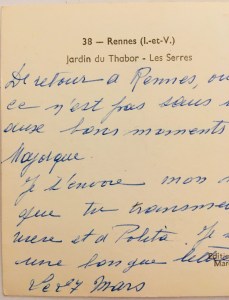 38 — Rennes (I.-et-V.)
Jardin du Thabor - Les Serres
De retour à Rennes, ou
ce n'est pas sans
deux bons moments
Majorque.
Je t'envoie mon
que tu transme
et à Polita. Je
une longue
Le 27 Mars